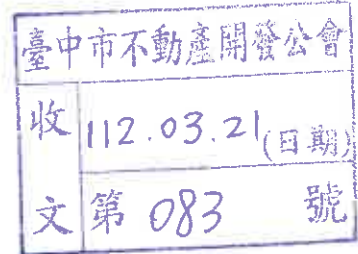 臺中市不動產開發公會
收 112.03.21(日期)
文 第 083 號